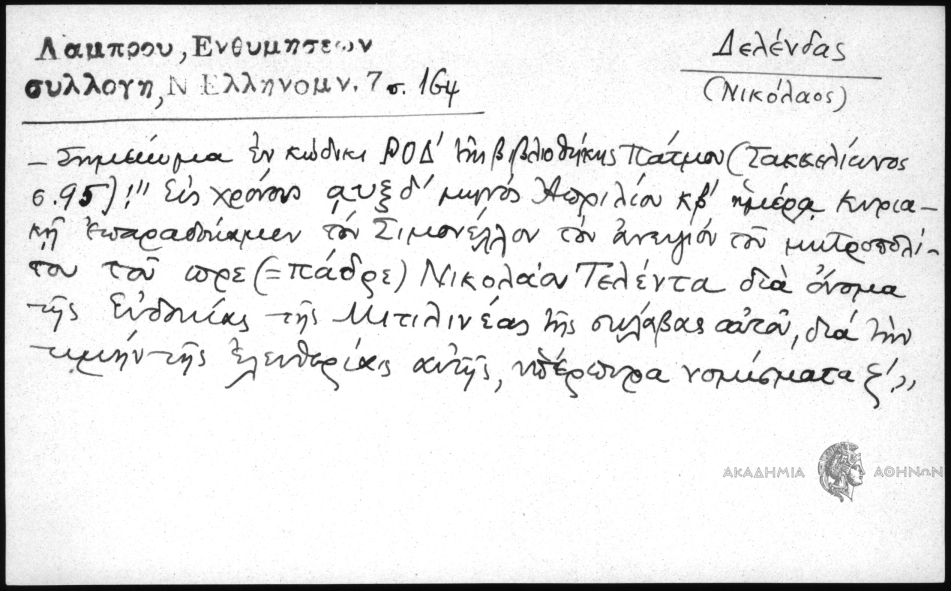 Λαμπρου, Ενθυμησεων
συλλογη, Ν Ελληνομν. 7 σ. 164
Δελένδας
(Νικόλαος)
– Σημείωμα ἐν κώδικι ΡΟΔ' τῆς βιβλιοθήκης Πάτμου (Σακκελίωνος
σ. 95) : " Εἰς χρόνους αυξδ' μηνός Ἀπριλίου κβ' ἡμέρα Κυρια-
κῇ ἐπαραδώκαμεν τόν Σιμονέλλον τόν ἀνεψιόν τοῦ μητροπολί-
του τοῦ πρε (= πάδρε) Νικολάου Τελέντα διά ὄνομα
τῆς Εὐδοκίας τῆς Μιτιλινέας τῆς σκλάβας αὐτοῦ, διά τήν
τιμήν τῆς ἐλευθερίας αὐτῆς, ὑπέρπυρα νομίσματα ξ' "
ΑΚΑΔΗΜΙΑ ΑΘΗΝΩΝ